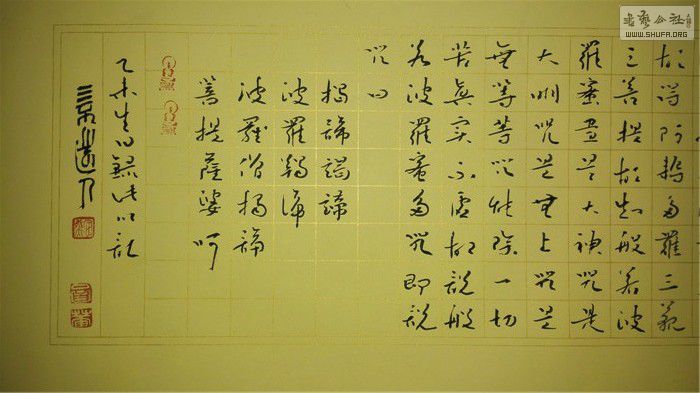 書藝公社
WWW.SHUFA.ORG
故得阿耨多羅三藐
三菩提故知般若波
羅蜜多是大神咒是
大明咒是無上咒是
無等等咒能除一切
苦真實不虛故說般
若波羅蜜多咒即說
咒曰
揭諦揭諦
波羅揭諦
波羅僧揭諦
菩提薩婆呵
乙未生日錄此以記